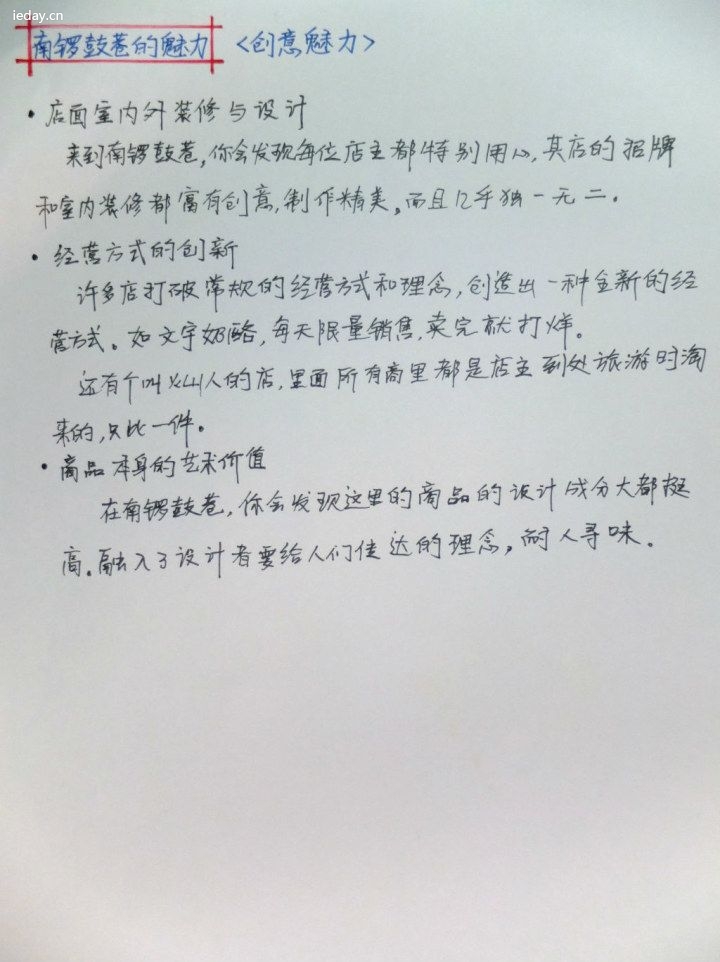 ieday.cn
南锣鼓巷的魅力 <创意魅力>
• 店面室内外装修与设计
来到南锣鼓巷，你会发现每位店主都特别用心，其店的招牌
和室内装修都富有创意，制作精美。而且几乎独一无二。
• 经营方式的创新
许多店打破常规的经营方式和理念，创造出一种全新的经
营方式。如文宇奶酪，每天限量销售，卖完就打烊。
还有个叫火山人的店，里面所有商里都是店主到处旅游时淘
来的，只此一件。
• 商品本身的艺术价值
在南锣鼓巷，你会发现这里的商品的设计成分大都挺
高。融入了设计者要给人们传达的理念，耐人寻味。